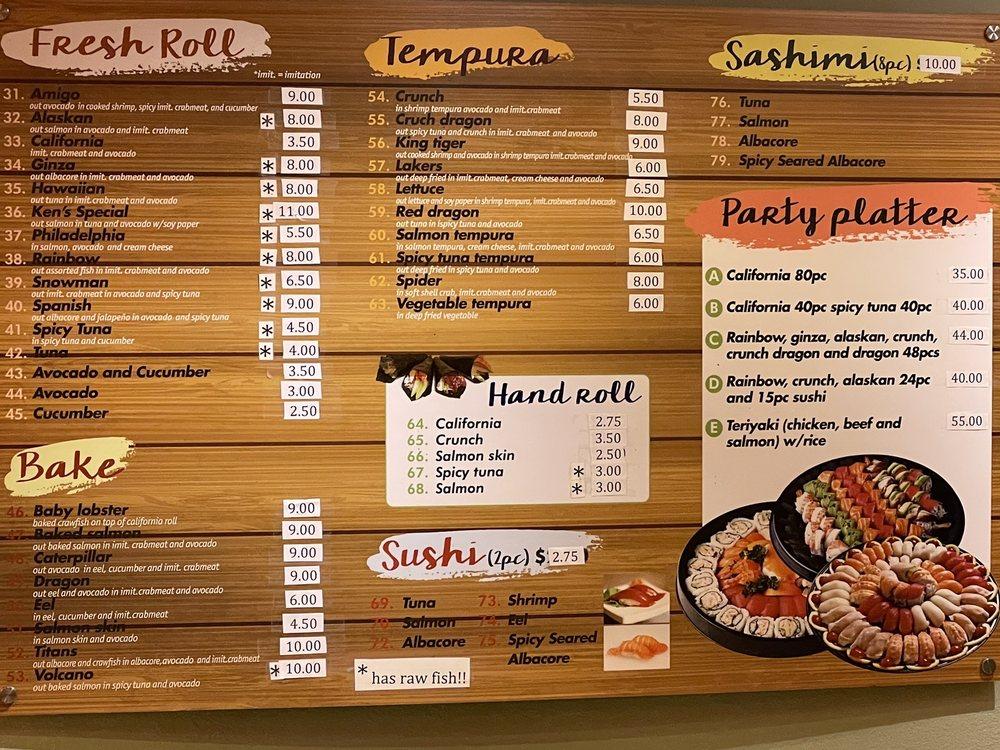 Fresh Roll
*imit. = imitation
31. Amigo 9.00
out avocado in cooked shrimp, spicy imit. crabmeat, and cucumber
32. Alaskan * 8.00
out salmon in avocado and imit. crabmeat
33. California 3.50
imit. crabmeat and avocado
34. Ginza * 8.00
out albacore in imit. crabmeat and avocado
35. Hawaiian * 8.00
out tuna in imit. crabmeat and avocado
36. Ken's Special * 11.00
out salmon in tuna and avocado w/soy paper
37. Philadelphia * 5.50
in salmon, avocado and cream cheese
38. Rainbow * 8.00
out assorted fish in imit. crabmeat and avocado
39. Snowman * 6.50
out imit. crabmeat in avocado and spicy tuna
40. Spanish * 9.00
out albacore and jalapeño in avocado and spicy tuna
41. Spicy Tuna * 4.50
in spicy tuna and cucumber
42. Tuna * 4.00
43. Avocado and Cucumber 3.50
44. Avocado 3.00
45. Cucumber 2.50
Bake
46. Baby lobster 9.00
baked crawfish on top of california roll
47. Baked salmon 9.00
out baked salmon in imit. crabmeat and avocado
Caterpillar 9.00
out avocado in eel, cucumber and imit. crabmeat
Dragon 9.00
out eel and avocado in imit.crabmeat and avocado
Eel 6.00
in eel, cucumber and imit.crabmeat
51. Salmon skin 4.50
in salmon skin and avocado
52. Titans 10.00
out albacore and crawfish in albacore,avocado and imit.crabmeat
53. Volcano * 10.00
out baked salmon in spicy tuna and avocado
Tempura
54. Crunch 5.50
in shrimp tempura avocado and imit.crabmeat
55. Cruch dragon 8.00
out spicy tuna and crunch in imit. crabmeat and avocado
56. King tiger 9.00
out cooked shrimp and avocado in shrimp tempura imit.crabmeat and avocado
57. Lakers 6.00
out deep fried in imit.crabmeat, cream cheese and avocado
58. Lettuce 6.50
out lettuce and soy paper in shrimp tempura, imit.crabmeat and avocado
59. Red dragon 10.00
out tuna in ispicy tuna and avocado
60. Salmon tempura 6.50
in salmon tempura, cream cheese, imit.crabmeat and avocado
61. Spicy tuna tempura 6.00
out deep fried in spicy tuna and avocado
62. Spider 8.00
in soft shell crab, imit.crabmeat, and avocado
63. Vegetable tempura 6.00
in deep fried vegetable
Hand Roll
64. California 2.75
65. Crunch 3.50
66. Salmon skin 2.50
67. Spicy tuna * 3.00
68. Salmon * 3.00
Sushi (2pc) $ 2.75
69. Tuna
70. Salmon
72. Albacore
73. Shrimp
74. Eel
75. Spicy Seared
Albacore
* has raw fish!!
Sashimi (8pc) $ 10.00
76. Tuna
77. Salmon
78. Albacore
79. Spicy Seared Albacore
Party platter
A California 80pc 35.00
B California 40pc spicy tuna 40pc 40.00
C Rainbow, ginza, alaskan, crunch, 44.00
crunch dragon and dragon 48pcs
D Rainbow, crunch, alaskan 24pc 40.00
and 15pc sushi
E Teriyaki (chicken, beef and 55.00
salmon) w/rice